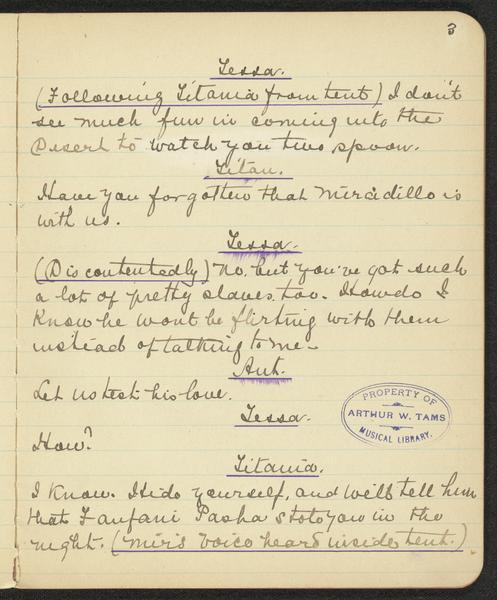 3
Tessa.
(Following Titania from tent) I don't
see much fun in coming into the
Desert to watch you two spoon.
Titan.
Have you forgotten that Miradillo is
with us.
Tessa.
(Discontentedly) No, but you've got such
a lot of pretty slaves, too. How do I
know he wont be flirting with them
instead of talking to me—
Ant.
Let us test his love.
Tessa.
How?
PROPERTY OF
ARTHUR W. TAMS
MUSICAL LIBRARY.
Titania.
I know. Hide yourself, and we'll tell him
that Fanfani Pasha stole you in the
night. (Mir's voice heard inside tent.)